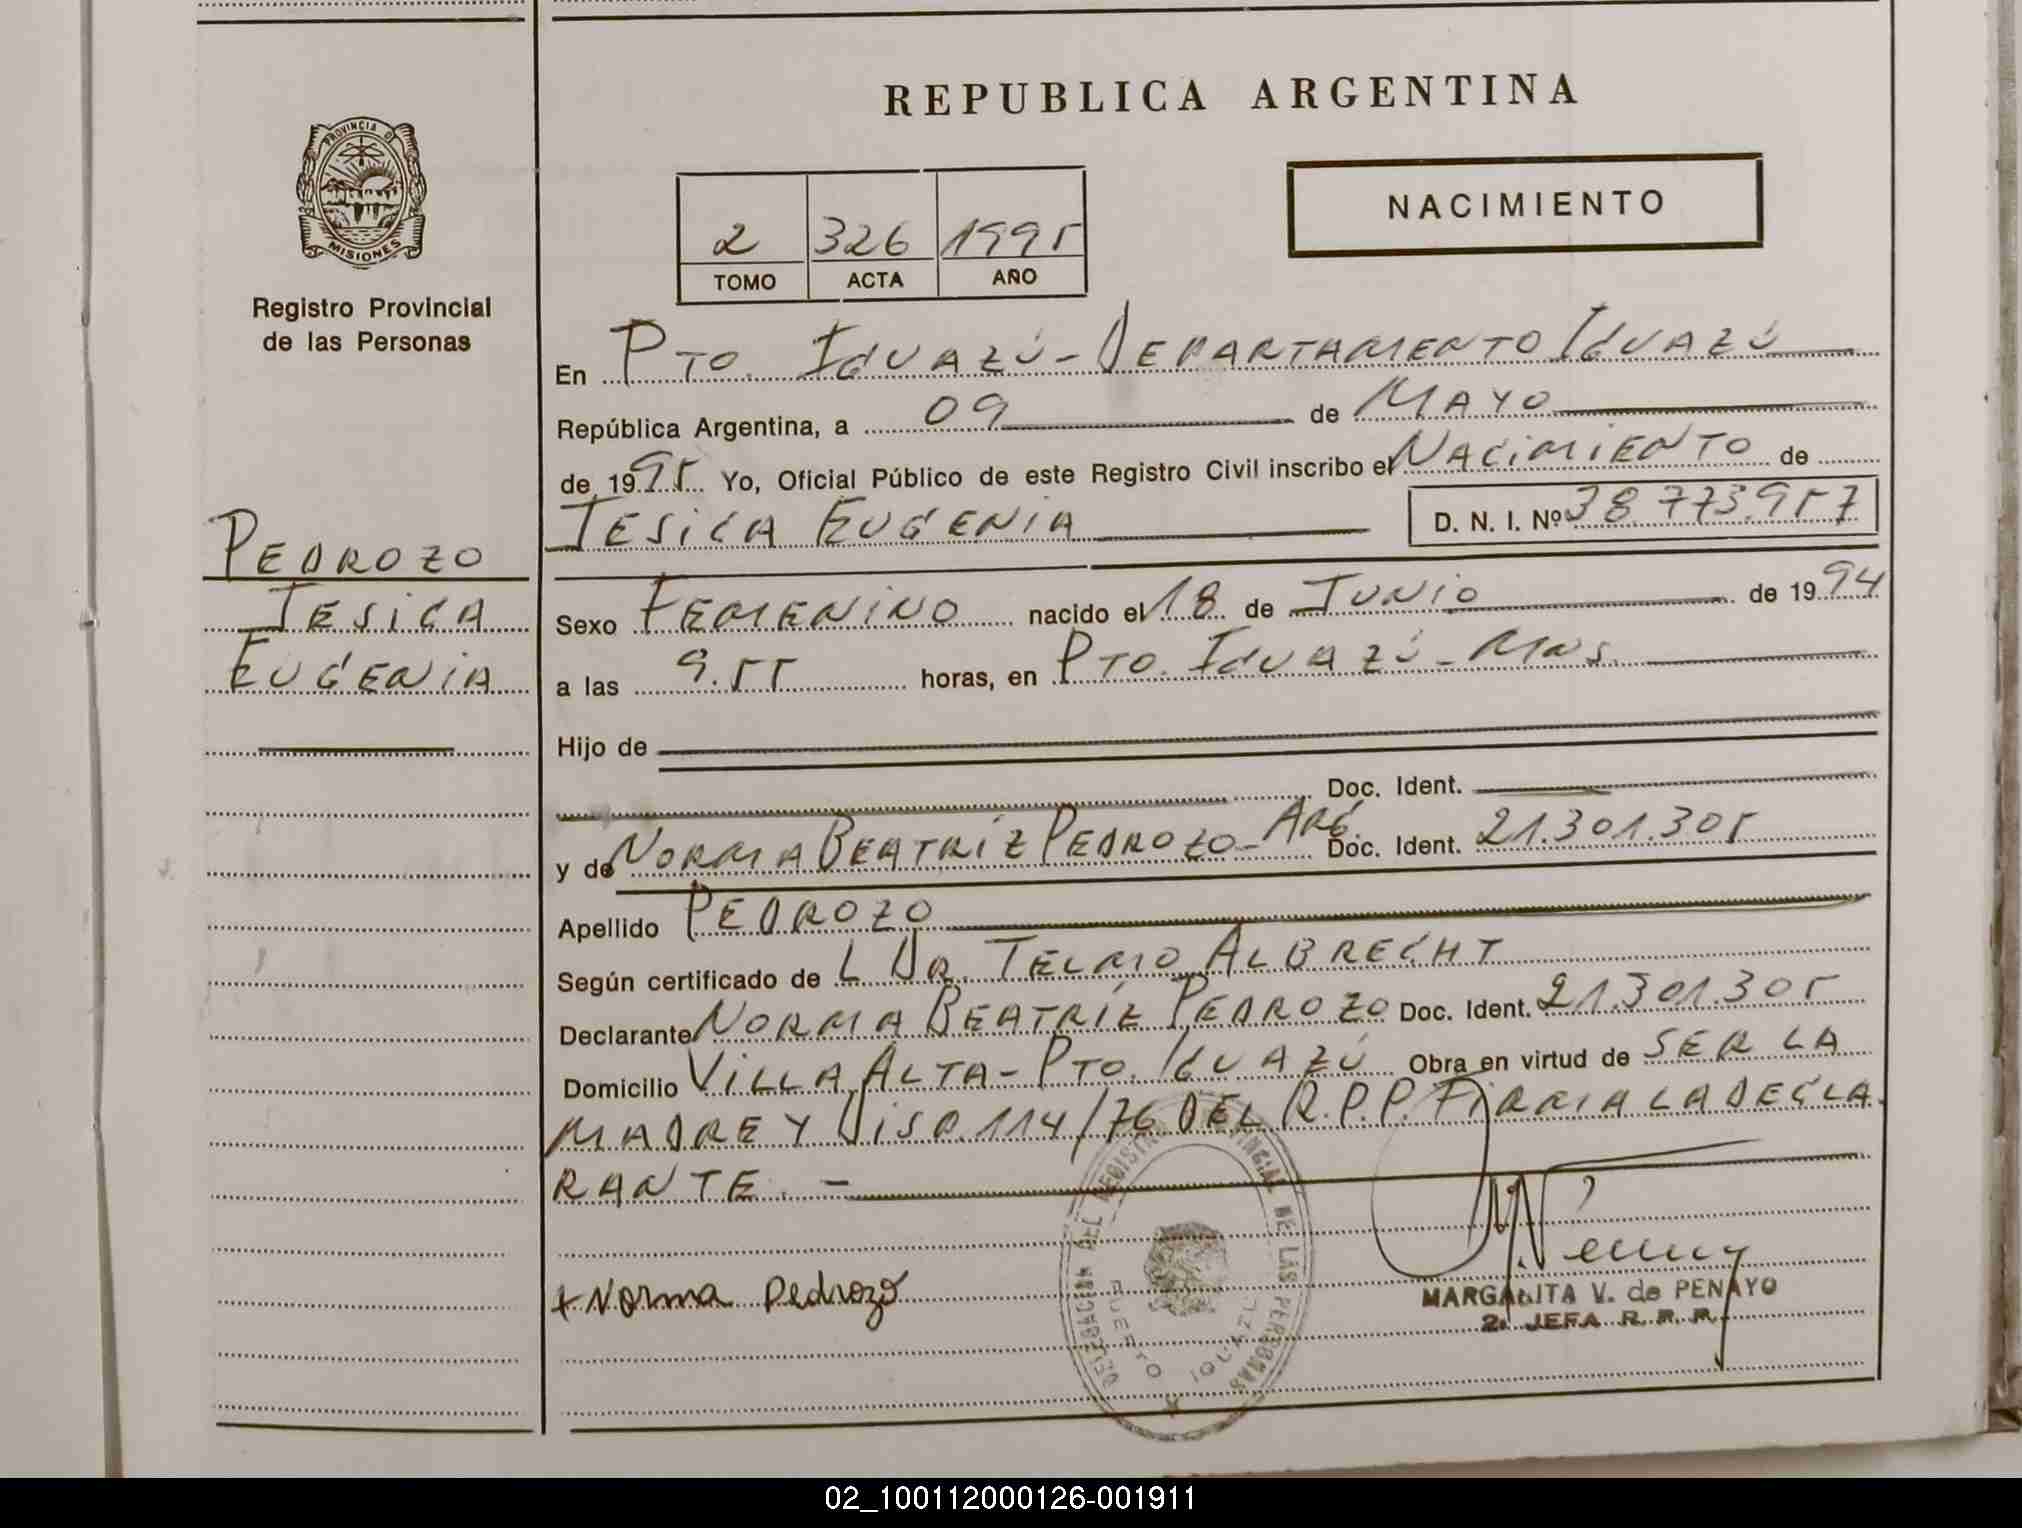 PROVINCIA DE
MISIONES
Registro Provincial
de las Personas
PEDROZO
JESICA
EUGENIA
REPUBLICA ARGENTINA
2 326 1995
TOMO ACTA AÑO
NACIMIENTO
En PTO. IGUAZÚ - DEPARTAMENTO IGUAZÚ
República Argentina, a 09 de MAYO
de 1995 Yo, Oficial Público de este Registro Civil inscribo el NACIMIENTO de
JESICA EUGENIA D. N. I. Nº 38.773.957
Sexo FEMENINO nacido el 18 de JUNIO de 1994
a las 9.55 horas, en PTO. IGUAZÚ - MNS.
Hijo de
Doc. Ident.
y de NORMA BEATRÍZ PEDROZO - ARG. Doc. Ident. 21.301.305
Apellido PEDROZO
Según certificado de L DR. TELMO ALBRECHT
Declarante NORMA BEATRÍZ PEDROZO Doc. Ident. 21.301.305
Domicilio VILLA ALTA - PTO. IGUAZÚ Obra en virtud de SER LA
MADRE Y DISP. 114/76 DEL R.P.P. FIRMA LA DECLA
RANTE. -
+ Norma Pedrozo
MARGARITA V. de PENAYO
2º JEFA R. P. P.
DELEGACION DEL REGISTRO PROVINCIAL DE LAS PERSONAS
PUERTO IGUAZU
02_100112000126-001911